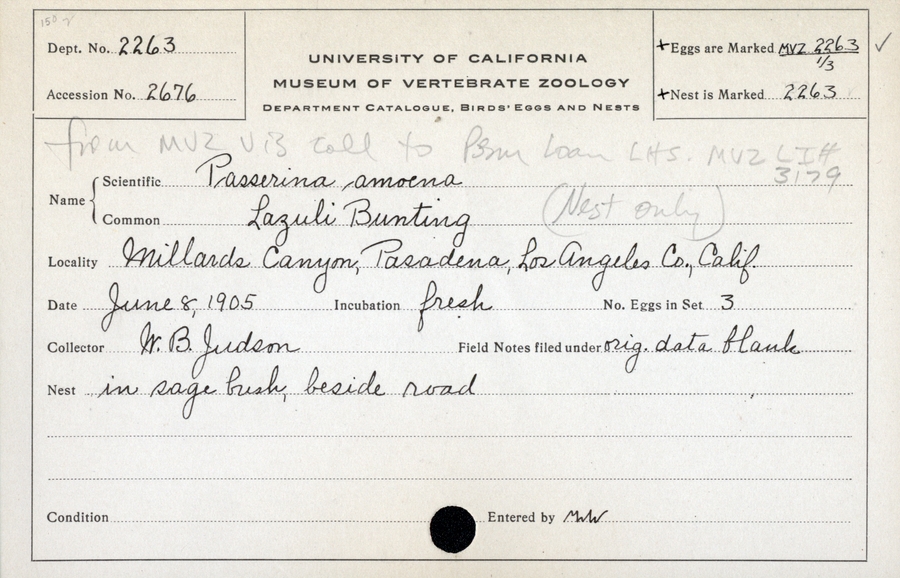 Dept. No. 2263
Accession No. 2676
UNIVERSITY OF CALIFORNIA
MUSEUM OF VERTEBRATE ZOOLOGY
DEPARTMENT CATALOGUE, BIRDS' EGGS AND NESTS
+Eggs are Marked MVZ 2263 ✓
1/3
+Nest is Marked 2263
from MVZ coll to Perm Loan LHS. MVZ LI#
3179
Name
Scientific Passerina amoena
Common Lazuli Bunting (Nest only)
Locality Millards Canyon, Pasadena, Los Angeles Co., Calif.
Date June 8, 1905 Incubation fresh No. Eggs in Set 3
Collector W. B. Judson Field Notes filed under orig. data blank
Nest in sage bush, beside road
Condition Entered by